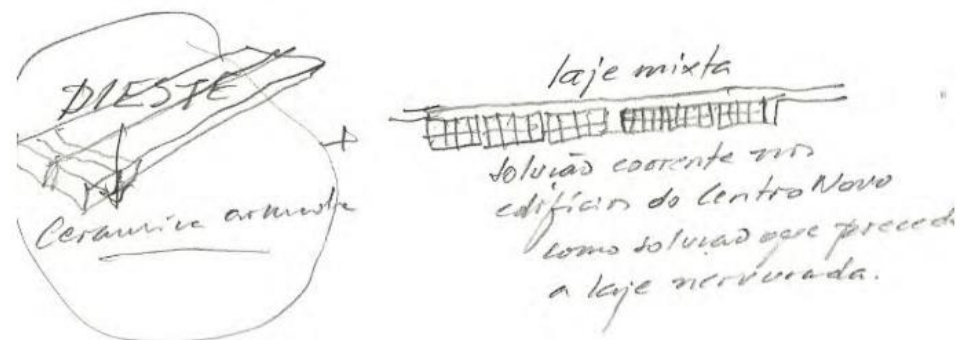 DIESTE
Ceramica armada
laje mixta
solução corrente nos
edifícios do Centro Novo
como solução que precede
a laje nervurada.